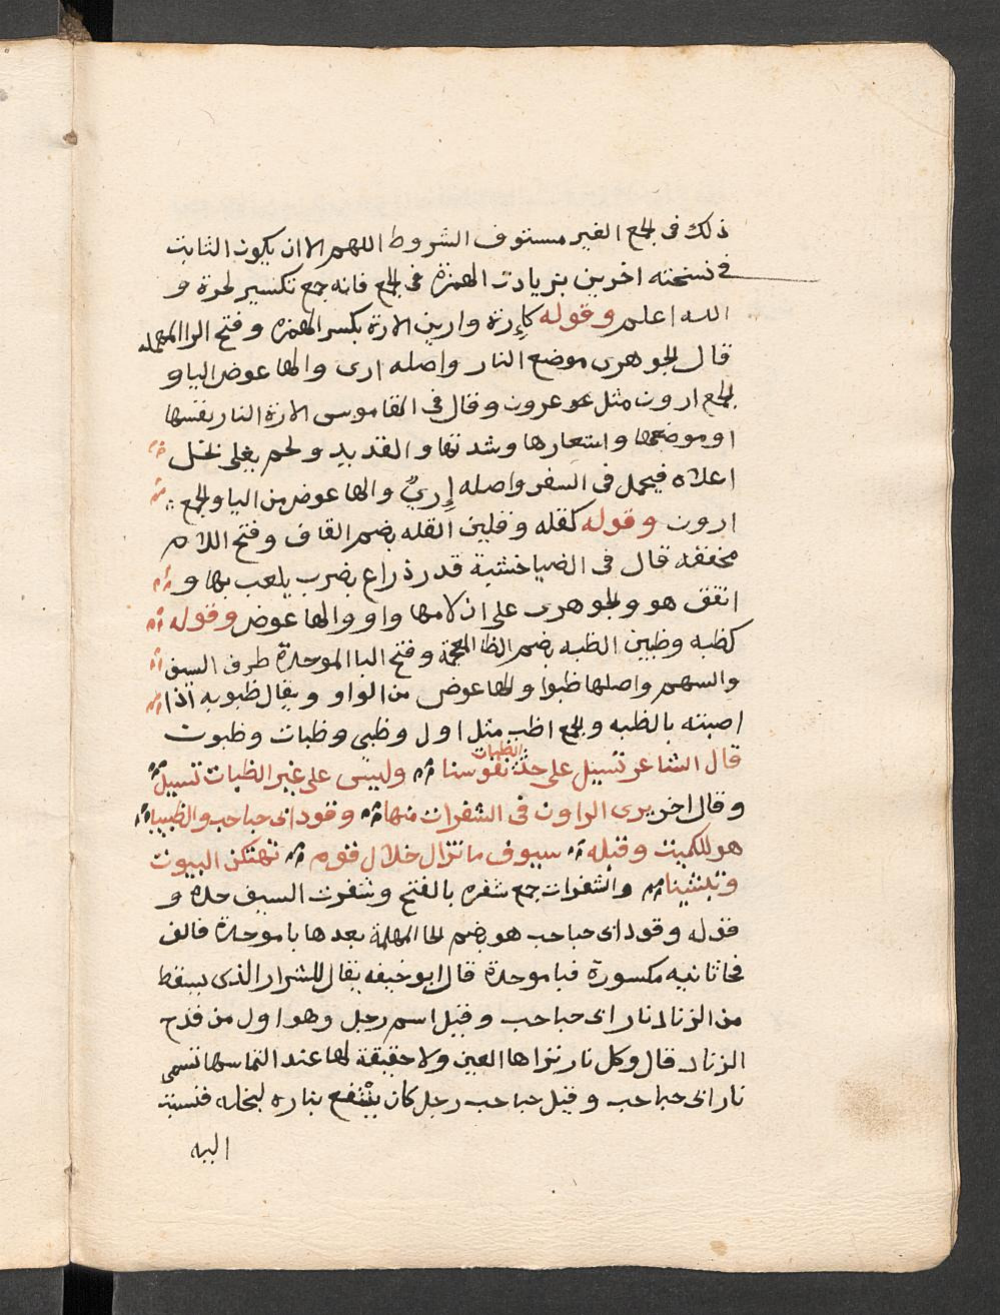 ذلك فى الجمع الغير مستوف الشروط اللهم الا ان يكون الثابت
فى نسخته اخرين بزيادت الهمزة فى الجمع فانه جمع تكسير لحرة و
الله اعلم وقوله كإرة وارين الارة بكسر الهمزه وفتح الرا المهمله
قال الجوهرى موضع النار واصله ارى والها عوض اليا و
الجمع ارون مثل عو عرون وقال فى القاموس الارة النار نفسها
او موضعها واستعارها وشدتها والقديد ولحم يغلى نخل
اعلاه فيحمل فى السفر واصله إرىٌ والها عوض من اليا والجمع
ارون وقوله كقله وقلين القله بضم القاف وفتح اللام
مخففه قال فى الضيا خشبة قدر ذراع يضرب يلعب بها و
اتفق هو والجوهرى على ان لامها واو والها عوض وقوله
كظبه وظبين الظبه بضم الظا المعجمة وفتح البا الموحدة طرف السيف
والسهم واصلها ظبوا والها عوض من الواو ويقال ظبو به اذا
اصبته بالظبه والجمع اظب مثل اول وظبى وظبات وظبوت
قال الشاعر تسيل على حد الظبات نفوسنا وليس على غير الظبات تسيل
وقال اخر يرى الراون فى الشفرات منها وقود ابى حباحب والظبيا
هو للكميت وقبله سيوف ما تزال خلال قوم تهتكن البيوت
والشفرات جمع شفره بالفتح وشفرت السيف حده و
قوله وقود ابى حباحب هو بضم الحا المهملة بعدها با موحدة فالف
فحا ثانيه مكسورة فبا موحدة قال ابو حنيفه يقال للشرار الذى يسقط
من الزناد نار ابى حباحب وقيل اسم رجل وهو اول من قدح
الزناد قال وكل نار تراها العين ولا حقيقة لها عند التماسها تسمى
نار ابى حباحب وقيل حباحب رجل كان ينتفع بناره لبخله فنسبت
اليه